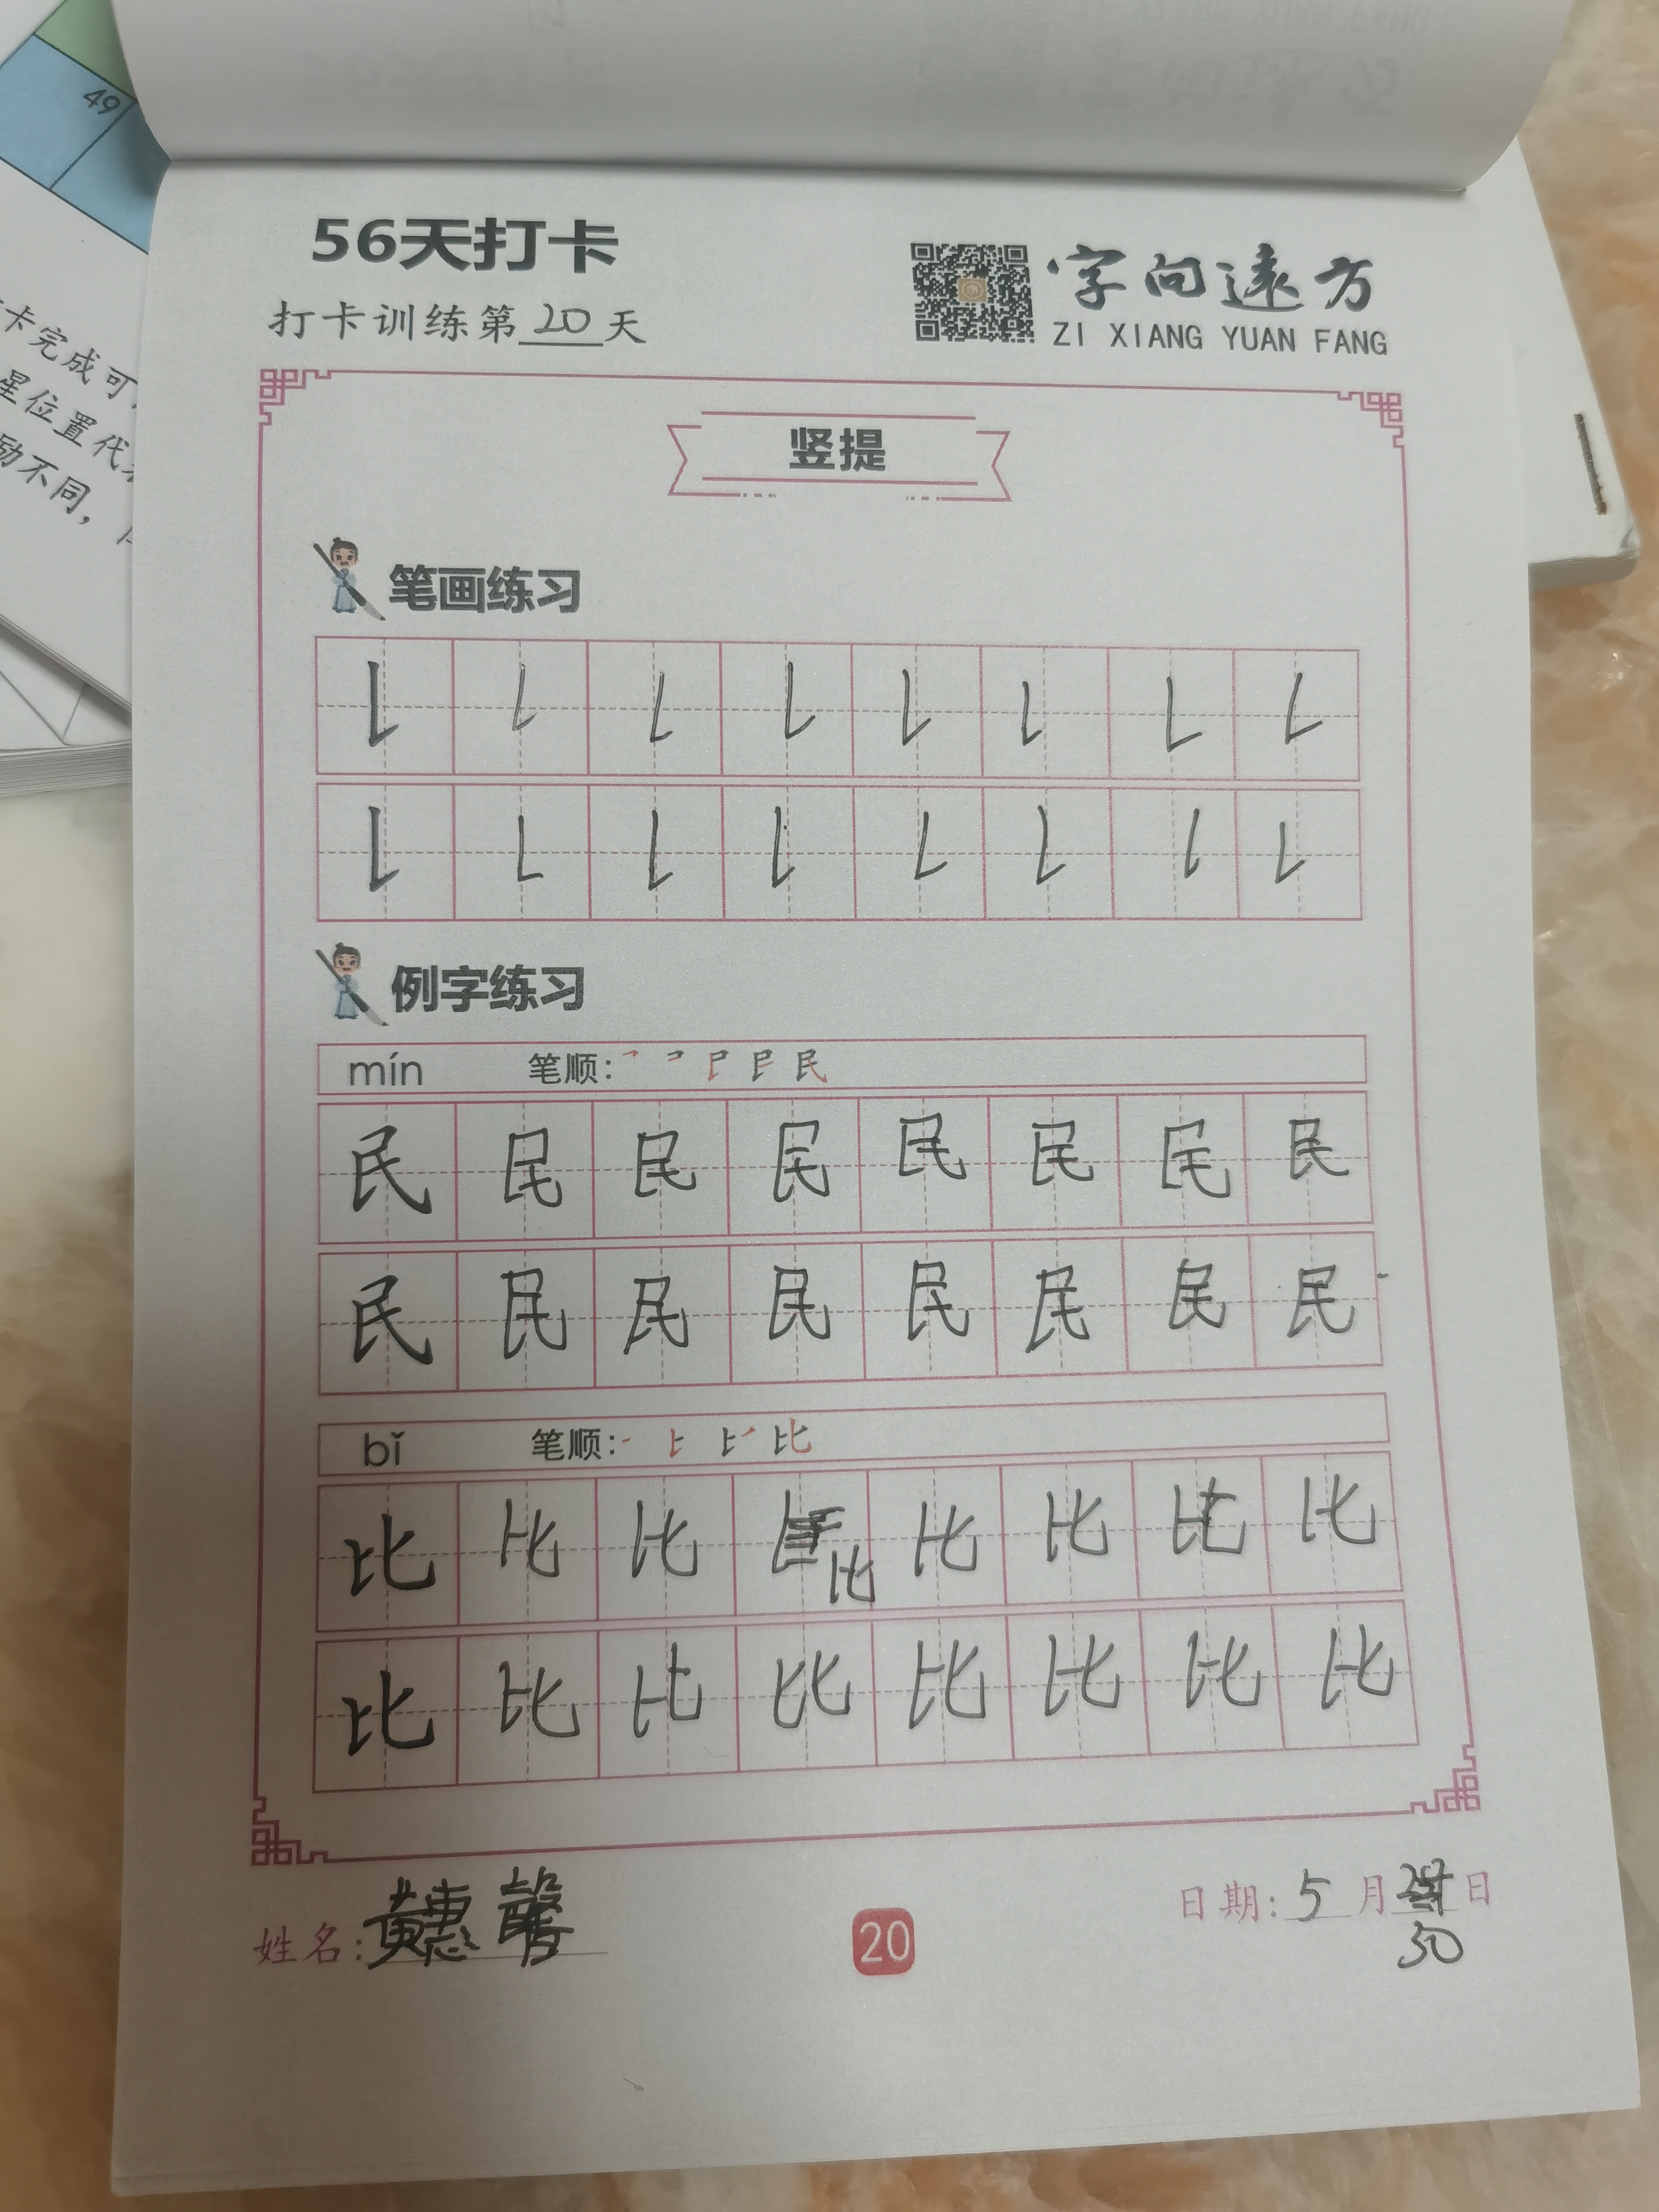 49
卡完成可
星位置代
励不同，
56天打卡
打卡训练第20天
字向远方
ZI XIANG YUAN FANG
竖提
笔画练习
例字练习
mín 笔顺：
民 民 民 民 民 民 民 民
民 民 民 民 民 民 民 民
bǐ 笔顺：
比 比 比 比 比 比 比 比
比 比 比 比 比 比 比 比
姓名：黄惠馨
20
日期：5月 日
30